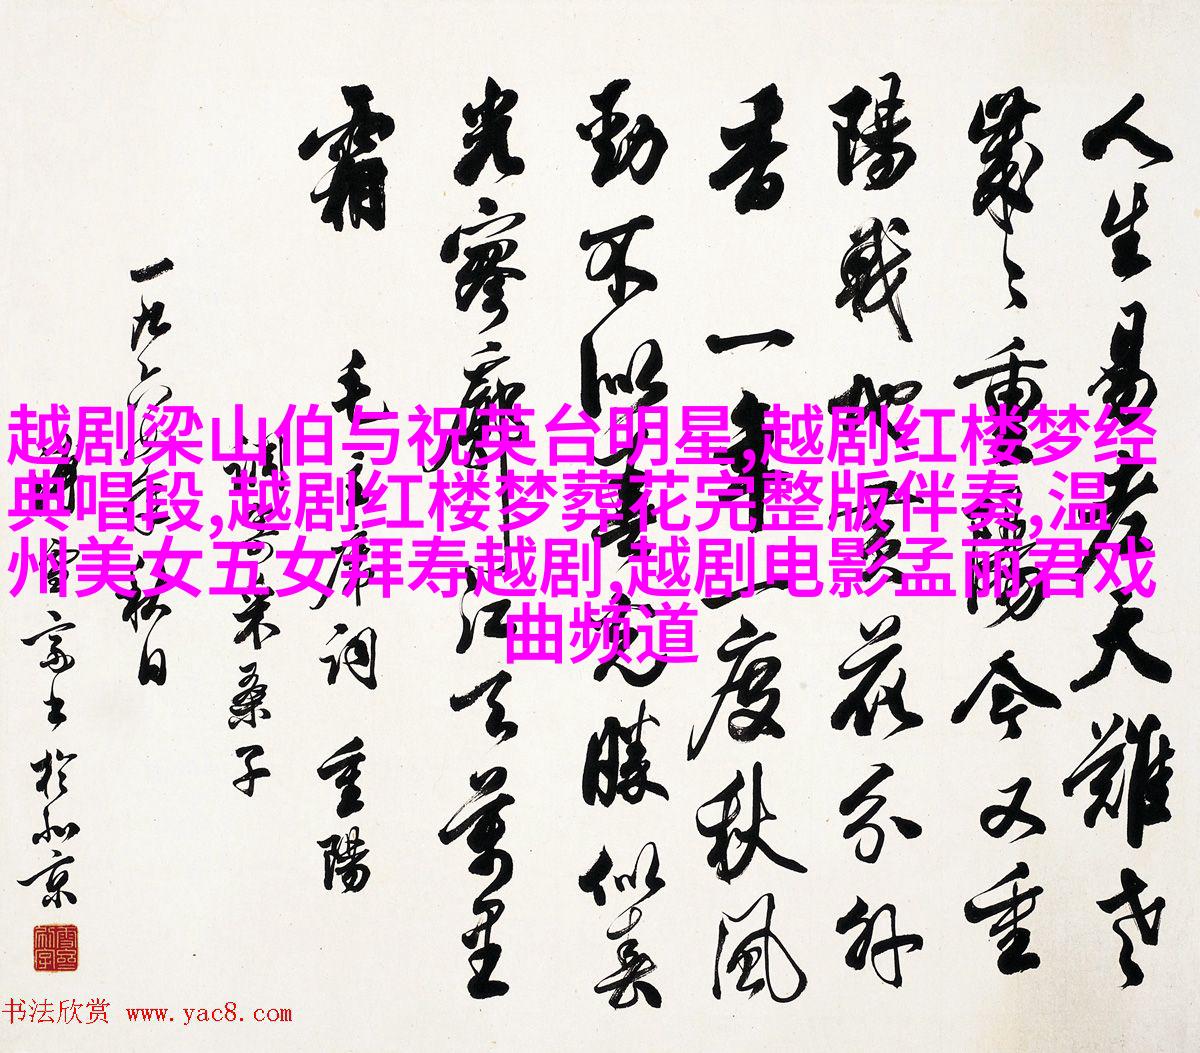 人生易老天難老
歲〻重陽今又重
陽戰地黃花分外
香一年一度秋風
勁不似春光勝似春
光寥廓江天萬里
霜
毛主席詞 重陽
調寄采桑子
一九六年日
書於北京
越剧梁山伯与祝英台明星,越剧红楼梦经
典唱段,越剧红楼梦葬花完整版伴奏,温
州美女五女拜寿越剧,越剧电影孟丽君戏
曲频道
书法欣赏 www.yac8.com